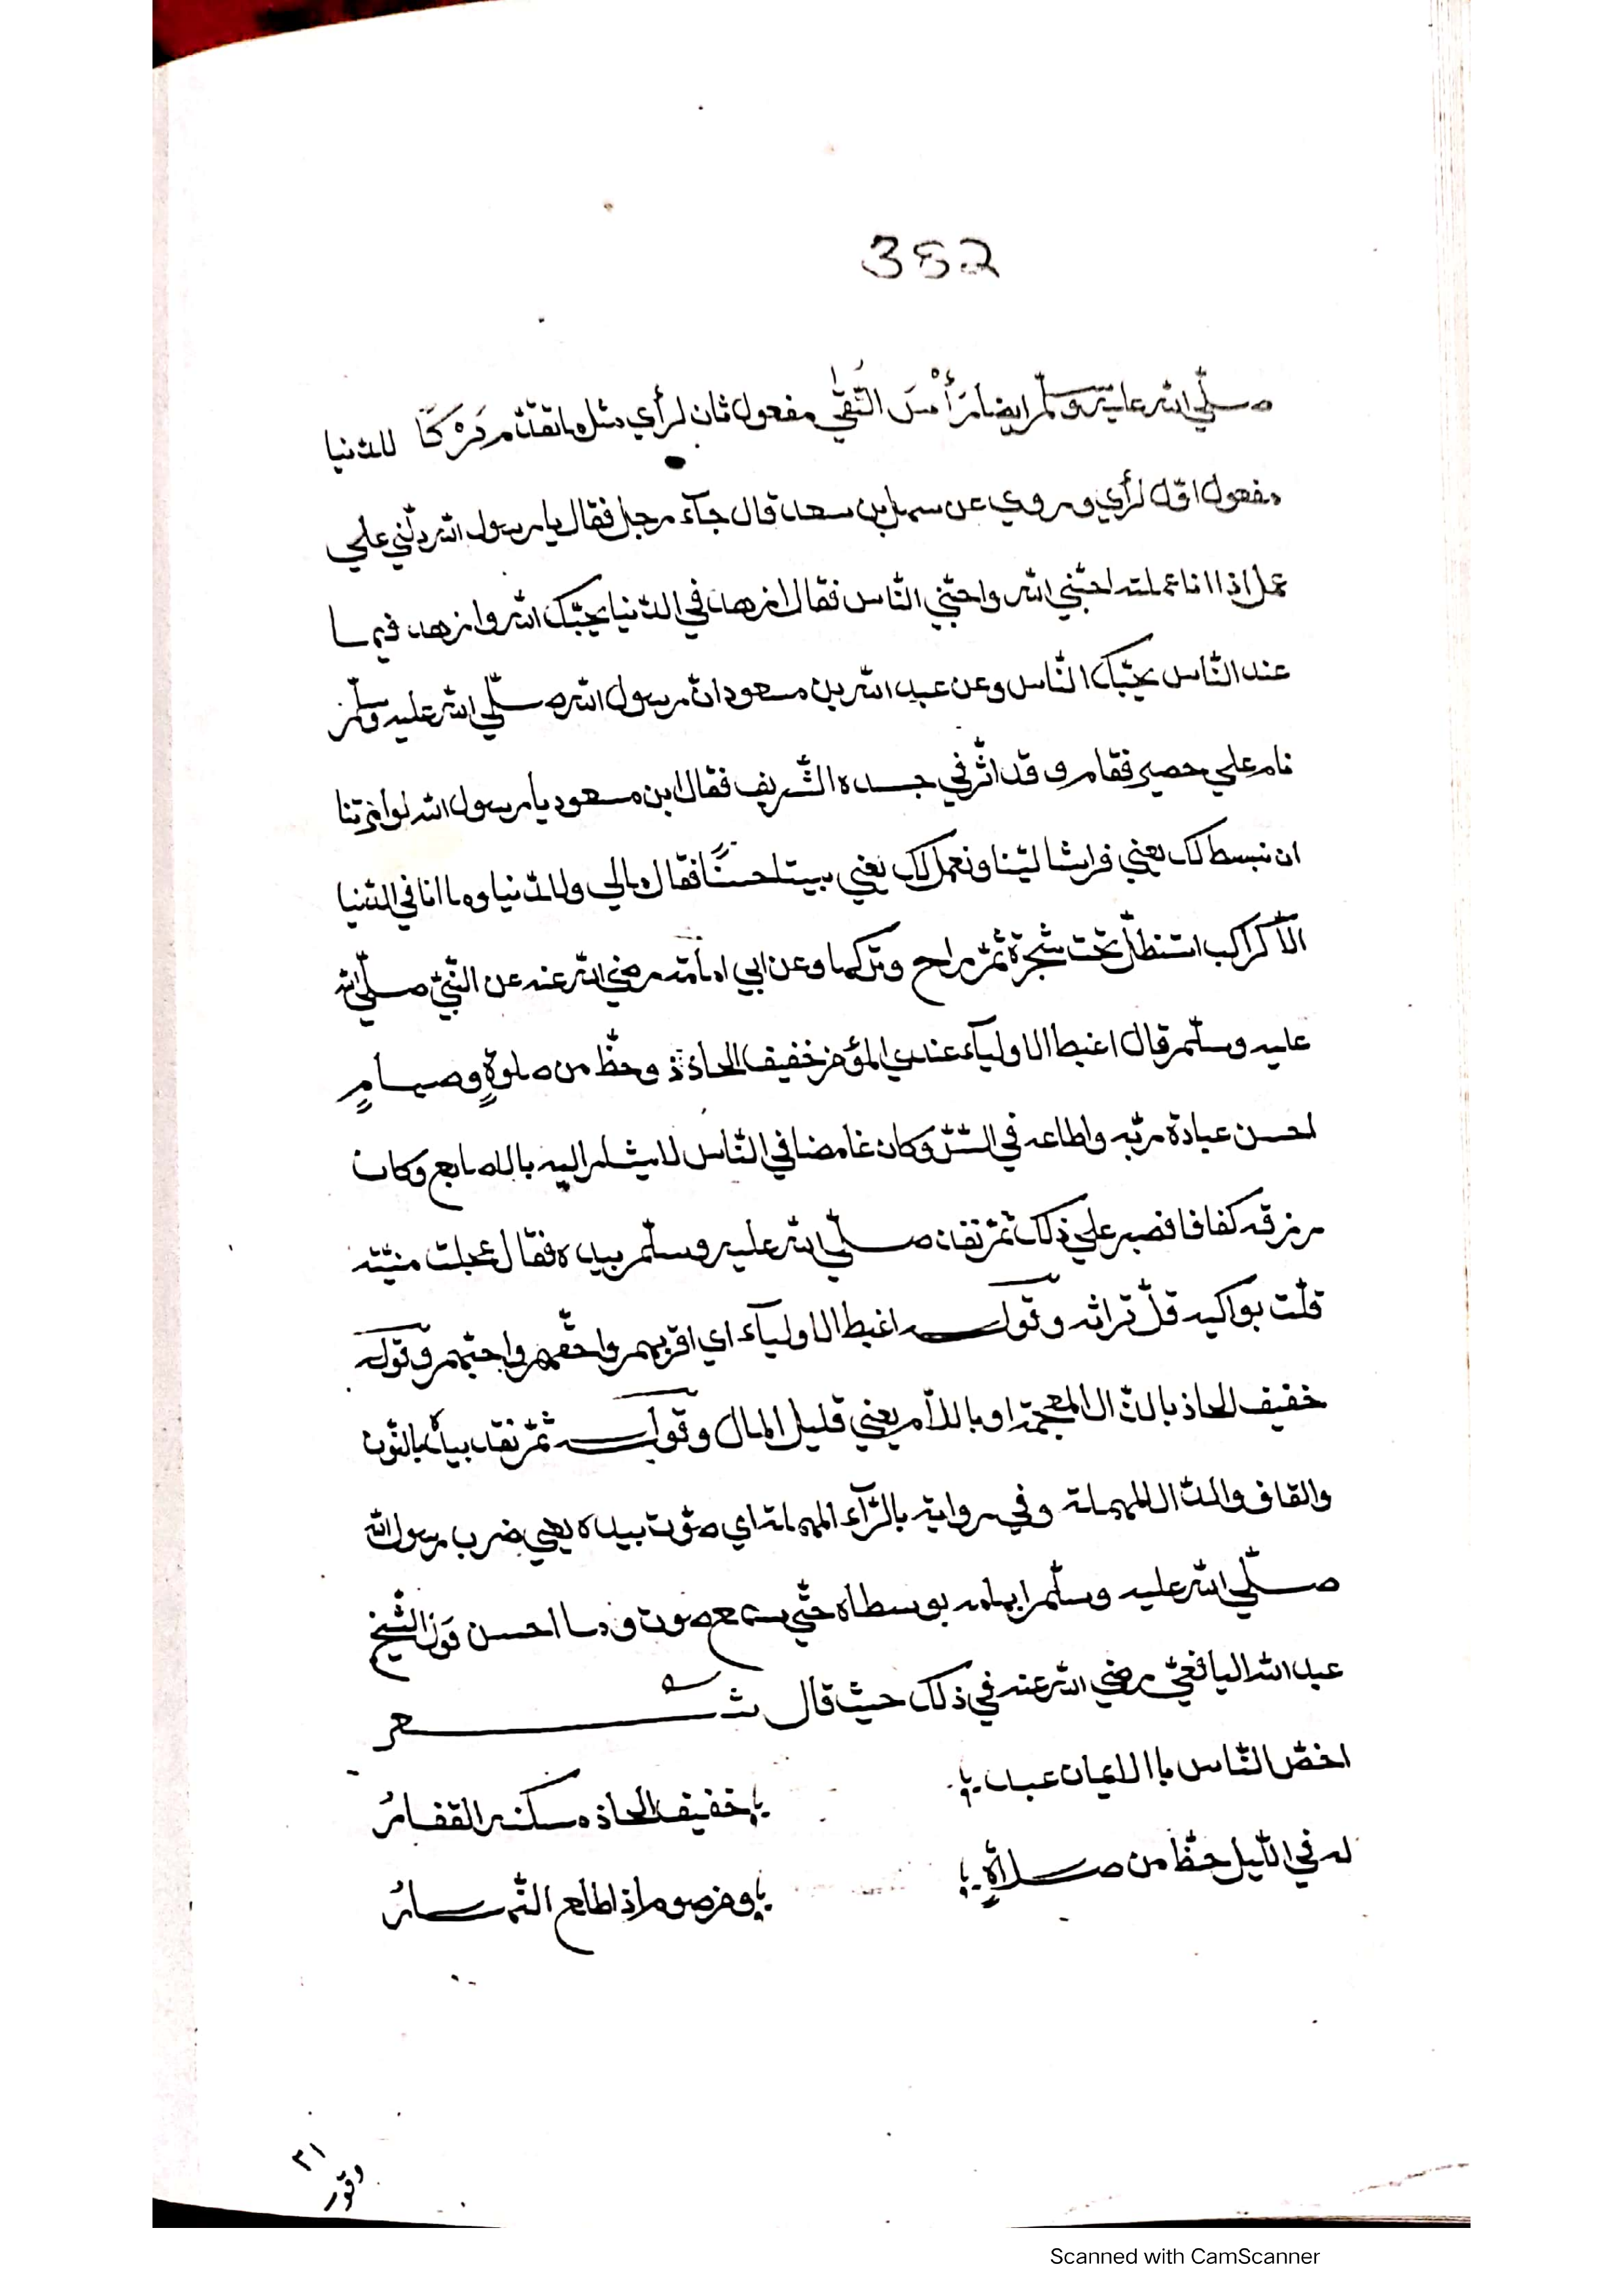 382
صلّي الله عليه وسلّم ايضا رَأْسَ التُّقٰي مفعول ثان لرأي مثل ما تقدّم تَرْكًا للدّنيا
مفعول اوّل لرأي وروي عن سهل بن سعد قال جآء رجل فقال يا رسول الله دلّني علي
عمل اذا انا عملته احبّني الله واحبّني النّاس فقال ازهد في الدّنيا يحبّك الله وازهد فيما
عند النّاس يحبّك النّاس وعن عبد الله بن مسعود انّ رسول الله صلّي الله عليه وسلّم
نام علي حصير فقام و قد اثّر في جسده الشّريف فقال ابن مسعود يا رسول الله لو امرتنا
ان نبسط لك يعني فراشا ليّنا ونعمل لك يعني بيتا حسنًا فقال مالي وللدّنيا وما انا في الدّنيا
الّا كراكب استظلّ تحت شجرة ثمّ راح وتركها وعن ابي امامة رضي الله عنه عن النّبيّ صلّي الله
عليه وسلّم قال اغبط الاوليآء عندي المؤمن خفيف الحاذ ذ وحظّ من صلوةٍ وصيامٍ
احسن عبادة ربّه واطاعه في السّرّ وكان غامضا في النّاس لا يشار اليه بالاصابع وكان
رزقه كفافا فصبر علي ذلك ثمّ نقد صلّي الله عليه وسلّم بيده فقال عجلت منيّته
قلّت بواكيه قلّ تراثه وقوله اغبط الاوليآء اي اقربهم واحقّهم واحبّهم وقوله
خفيف الحاذ بالذّال المعجمة او باللّام يعني قليل المال وقوله ثمّ نقد بيده بالنّون
والقاف والدّال المهملة وفي رواية بالرّآء المهملة اي صوّت بيده يعني ضرب رسول الله
صلّي الله عليه وسلّم ابهامه بوسطاه حتّي يسمع صوت وما احسن قول الشّيخ
عبد الله اليافعيّ رضي الله عنه في ذلك حيث قال شعر
اخصّ النّاس باالايمان عبد خفيف الحاذ مسكنه القفارُ
له في اللّيل حظّا من صلاةٍ ومن صوم اذا طلع النّهارُ
٢١
وقور